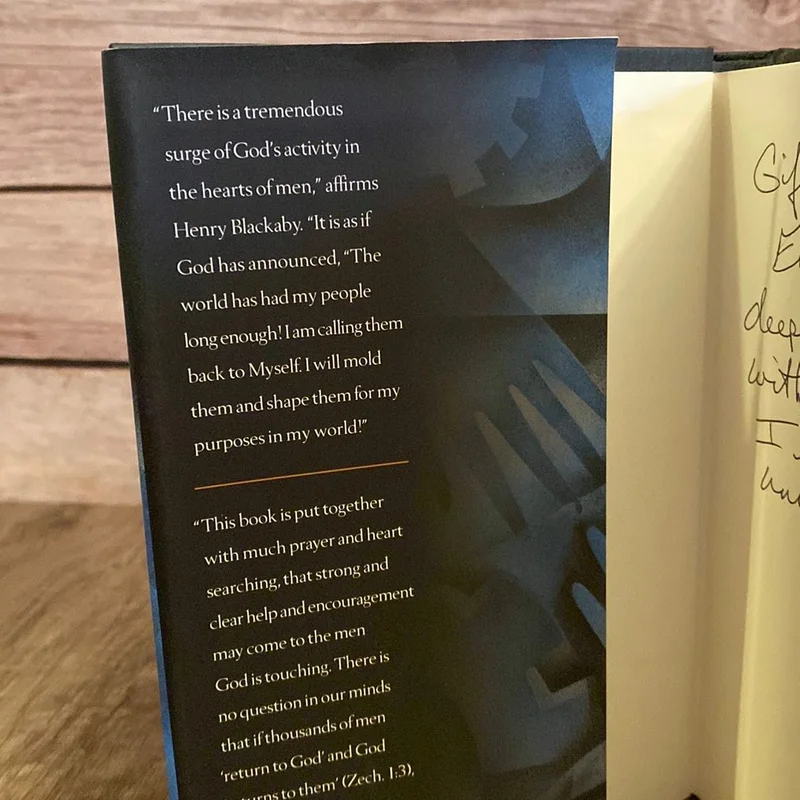 “There is a tremendous
surge of God’s activity in
the hearts of men,” affirms
Henry Blackaby. “It is as if
God has announced, “The
world has had my people
long enough! I am calling them
back to Myself. I will mold
them and shape them for my
purposes in my world!”
“This book is put together
with much prayer and heart
searching, that strong and
clear help and encouragement
may come to the men
God is touching. There is
no question in our minds
that if thousands of men
‘return to God’ and God
to them’ (Zech. 1:3),
deep
with
I